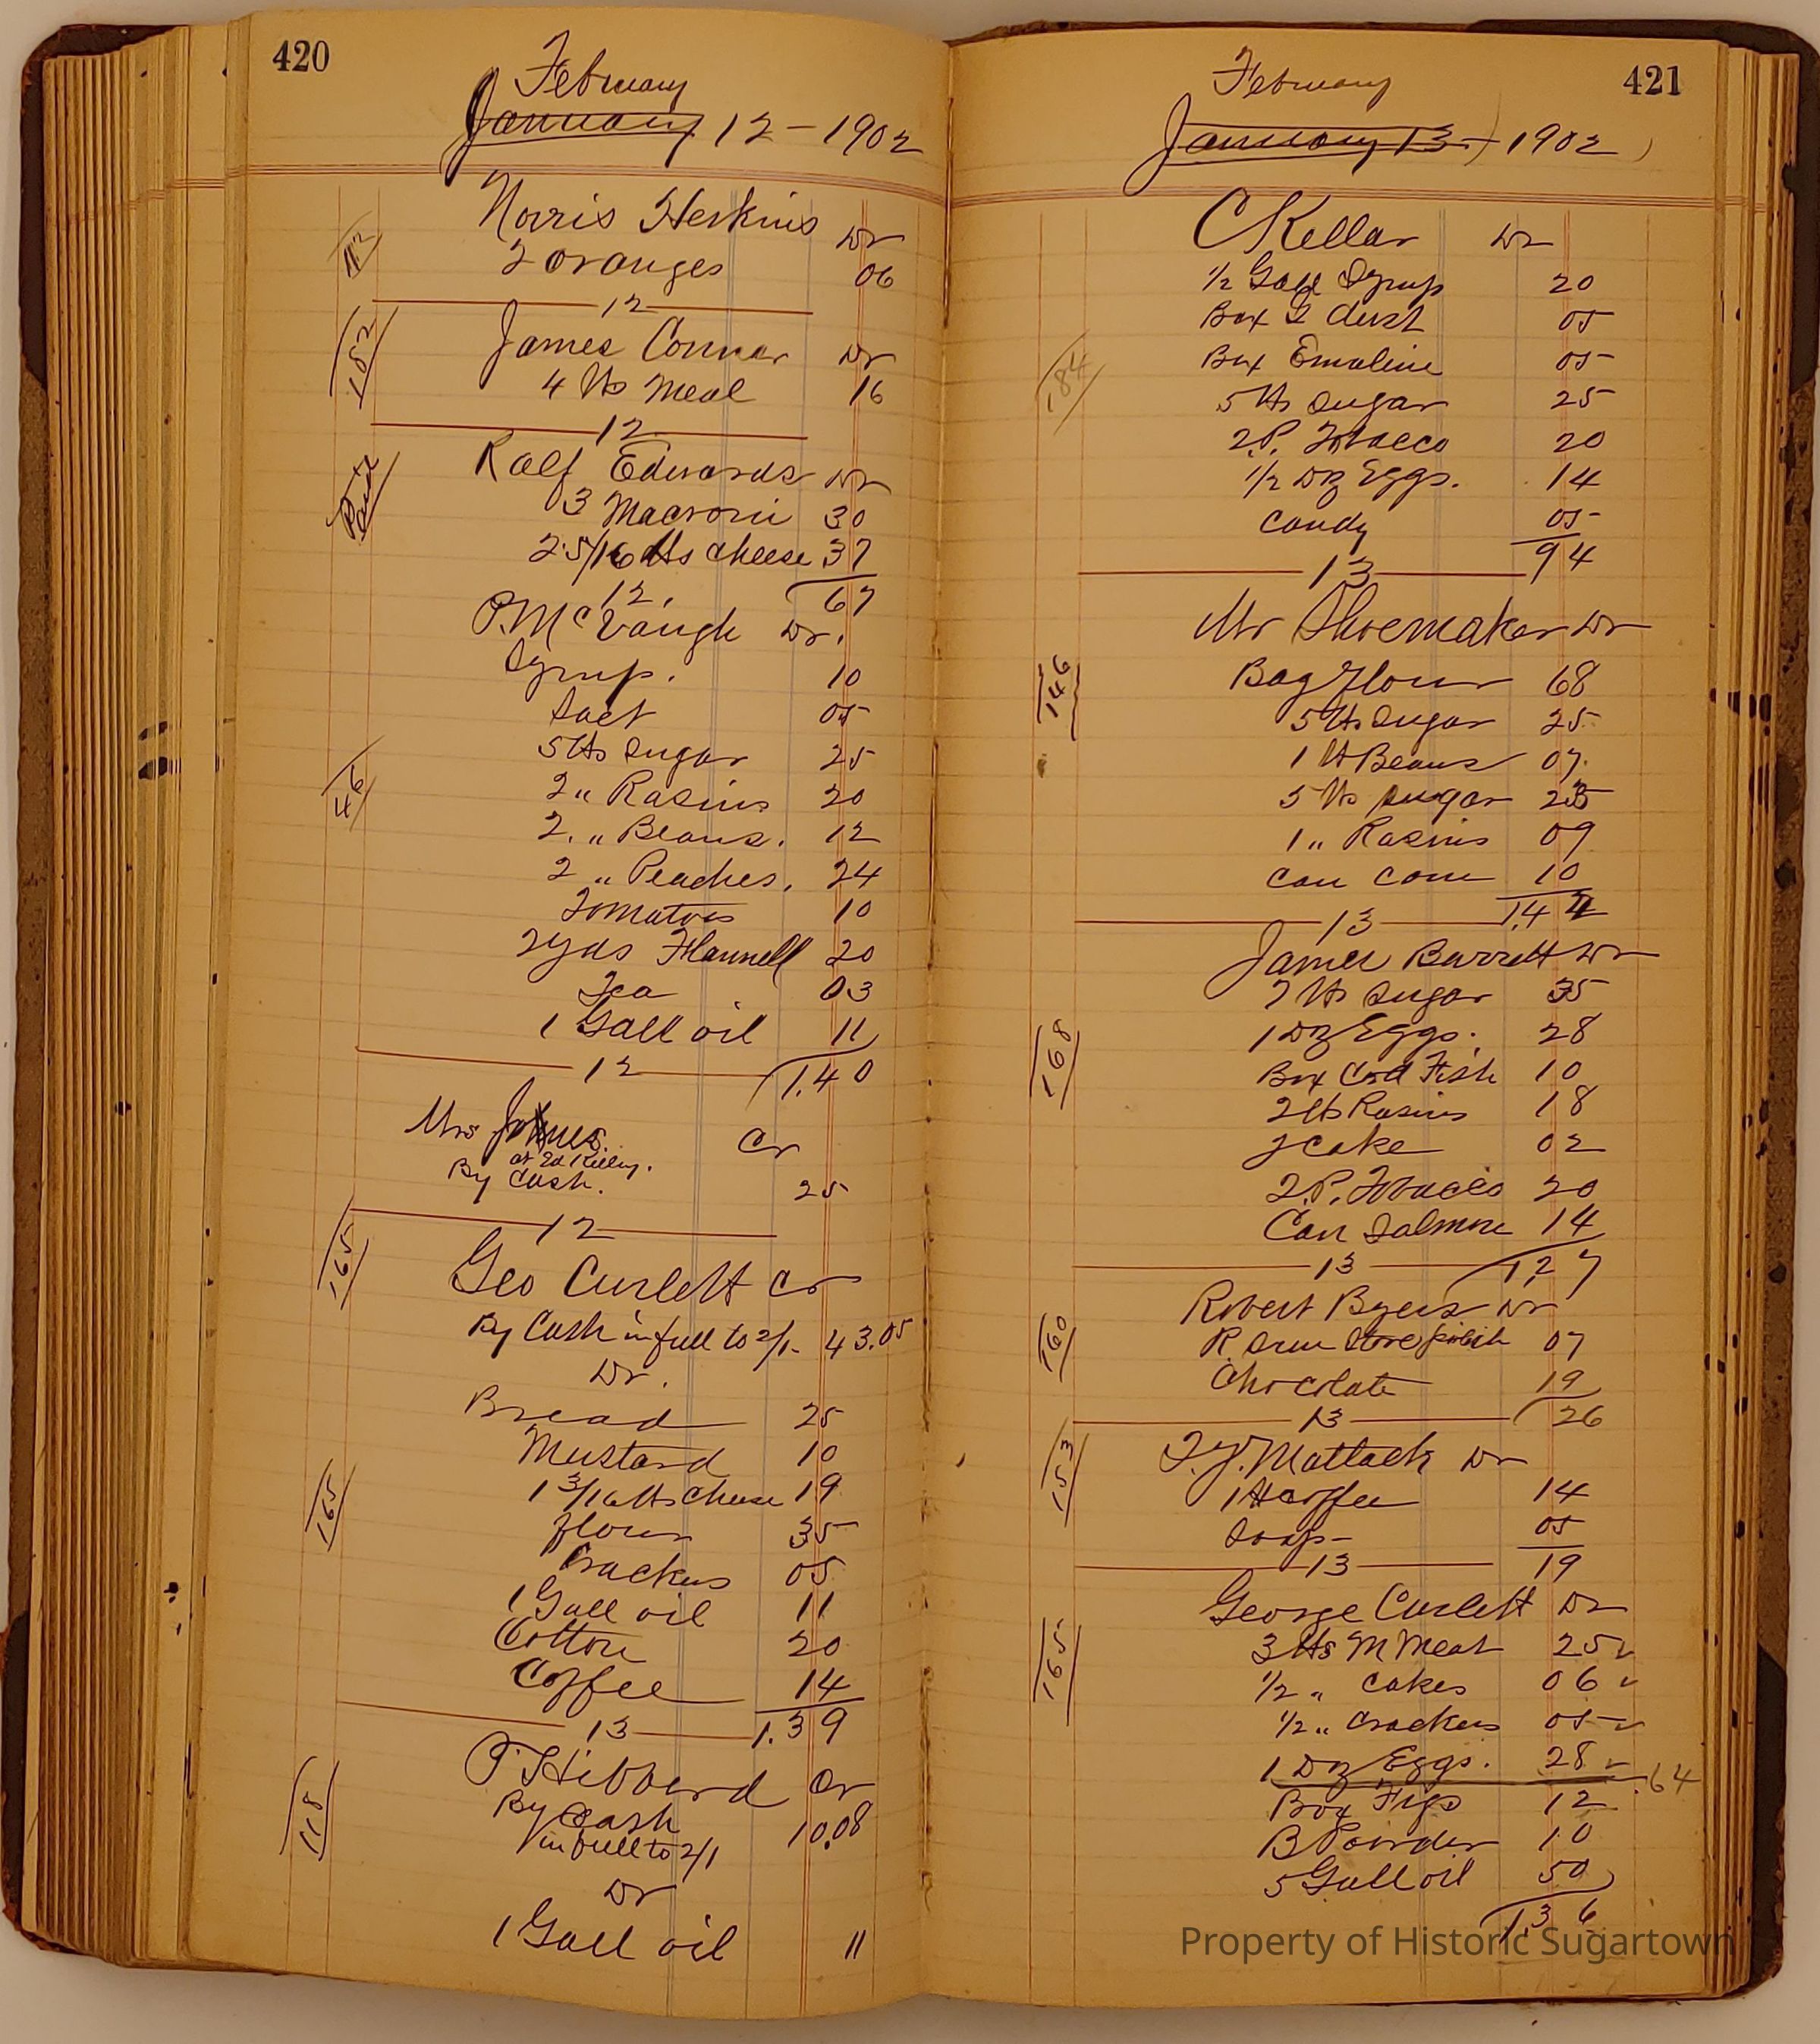 420
February
January 12 - 1902
Norris Herkins Dr
2 oranges 06
12
182
James Connor Dr
4 lbs Meal 16
12
Paid
Ralf Edwards Dr
3 Macroni 30
2 5/16 lbs cheese 37
12. 67
P. McVaugh Dr.
Syrup. 10
Salt 05
5 lbs Sugar 25
46
2 " Rasins 20
2. " Beans. 12
2 " Peaches. 24
Tomatoes 10
2 yds Flannell 20
Tea 03
1 Gall oil 11
12 1.40
Mrs Cr
at Ed Kelley.
By Cash. 25
12
165
Geo Curlett Cr
By Cash in full to 2/1- 43.05
Dr.
Bread 25
Mustard 10
165
1 3/16 lbs cheese 19
flour 35
Crackers 05
1 Gall oil 11
Cotton 20
Coffee 14
13 1.39
118
P Hibberd Cr
By Cash
in full to 2/1 10.08
Dr
1 Gall oil 11
421
February
January 13 - 1902
C Kellar Dr
1/2 Gall Syrup 20
Box G dust 05
184
Box Emaline 05
5 lbs Sugar 25
2 P. Tobacco 20
1/2 Dz Eggs. 14
Candy 05
13 94
Mr Shoemaker Dr
146
Bag Flour 68
5 lbs Sugar 25
1 lb Beans 07.
5 lbs Sugar 25
1 " Rasins 09
Can Corn 10
13 1.44
James Barrett Dr
7 lbs Sugar 35
168
1 Dz Eggs. 28
Box Cod Fish 10
2 lbs Rasins 18
y cake 02
2 P. Tobacco 20
Can Salmon 14
13 1.27
160
Robert Byers Dr
R. Sun Stove polish 07
Chocolate 19
13 26
153
T. J. Matlack Dr
1 lb coffee 14
Soap 05
13 19
George Curlett Dr
165
3 lbs M Meat 25
1/2 " Cakes 06
1/2 " Crackers 05
1 Dz Eggs. 28 .64
Box Figs 12
B Powder 10
5 Gall oil 50
1.36
Property of Historic Sugartown